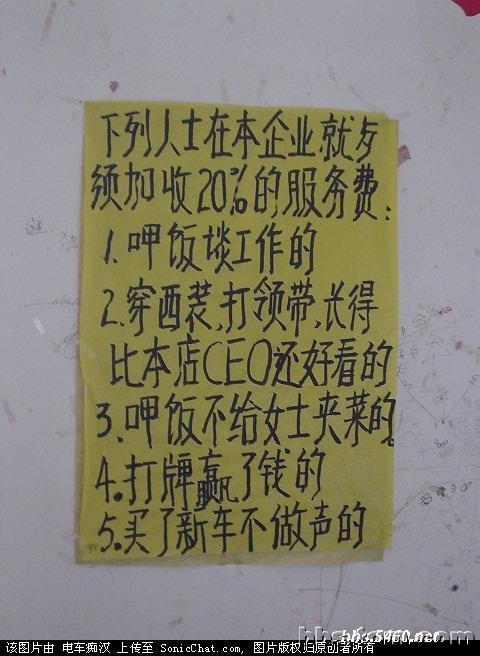 下列人士在本企业就歺
须加收20%的服务费:
1.呷饭垓工作的
2.穿西装,打领带,长得
比本店CEO还好看的
3、呷饭不给女士夹菜的。
4.打牌赢了钱的
5.买了新车不做声的
bbs.5460.net
该图片由 电车痴汉 上传至 SonicChat.com, 图片版权归原创著者所有